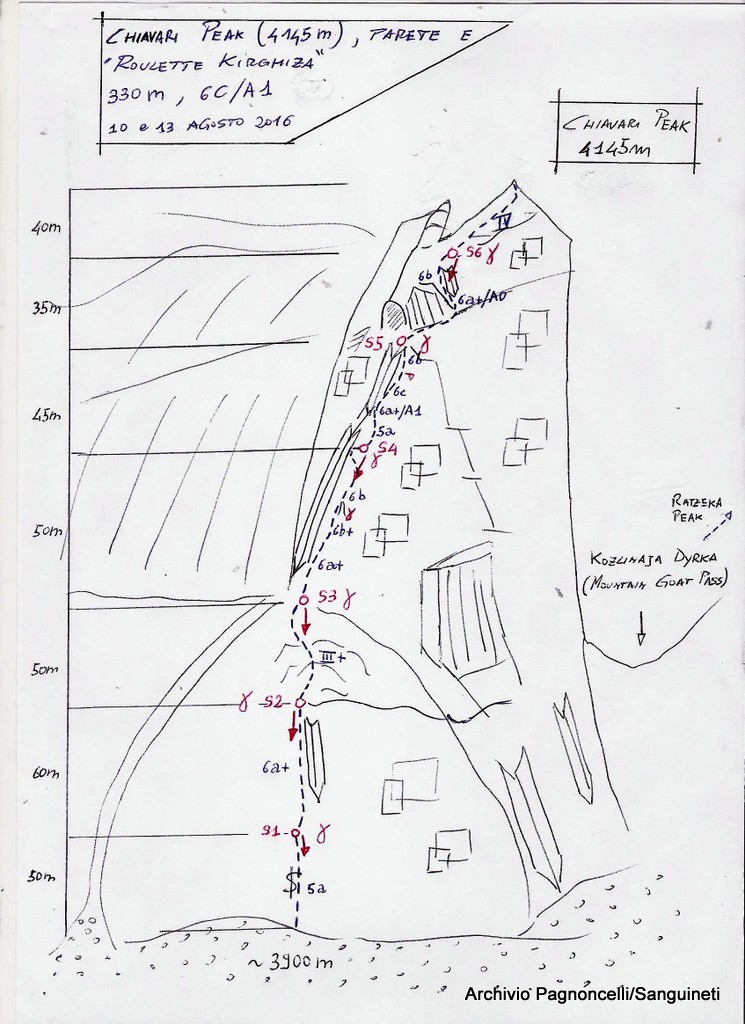 CHIAVARI PEAK (4145m), PARETE E
"ROULETTE KIRGHIZA"
330m, 6C/A1
10 e 13 AGOSTO 2016
CHIAVARI PEAK
4145m
40m
IV
S6
6b
6a+/A0
35m
S5
6b
6c
45m
6a+/A1
5a
S4
6b
50m
6b+
6a+
RATZEKA
PEAK
KOZLINAJA DYRKA
(MOUNTAIN GOAT PASS)
S3
III+
50m
S2
6a+
60m
S1
50m
5a
~3900m
Archivio Pagnoncelli/Sanguineti